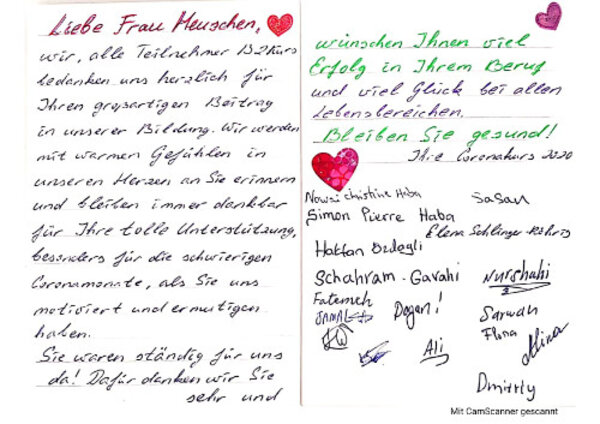 Liebe Frau Menschen,
wir, alle Teilnehmer B2Kurs
bedanken uns herzlich für
Ihren großartigen Beitrag
in unserer Bildung. Wir werden
mit warmen Gefühlen in
unseren Herzen an Sie erinnern
und bleiben immer dankbar
für Ihre tolle Unterstützung,
besonders für die schwierigen
Coronamonate, als Sie uns
motiviert und ermutigen
haben.
Sie waren ständig für uns
da! Dafür danken wir Sie
sehr und
wünschen Ihnen viel
Erfolg in Ihrem Beruf
und viel Glück bei allen
Lebensbereichen.
Bleiben Sie gesund!
Ihre Coronakurs 2020
christine Haba
Sasan
Simon Pierre Haba
Elena
Schahram - Gavahi
Nurshahi
Fatemeh
JAMAL
Dogan!
Sarwan
Flona
Mina
Ali
Dmitriy
Mit CamScanner gescannt